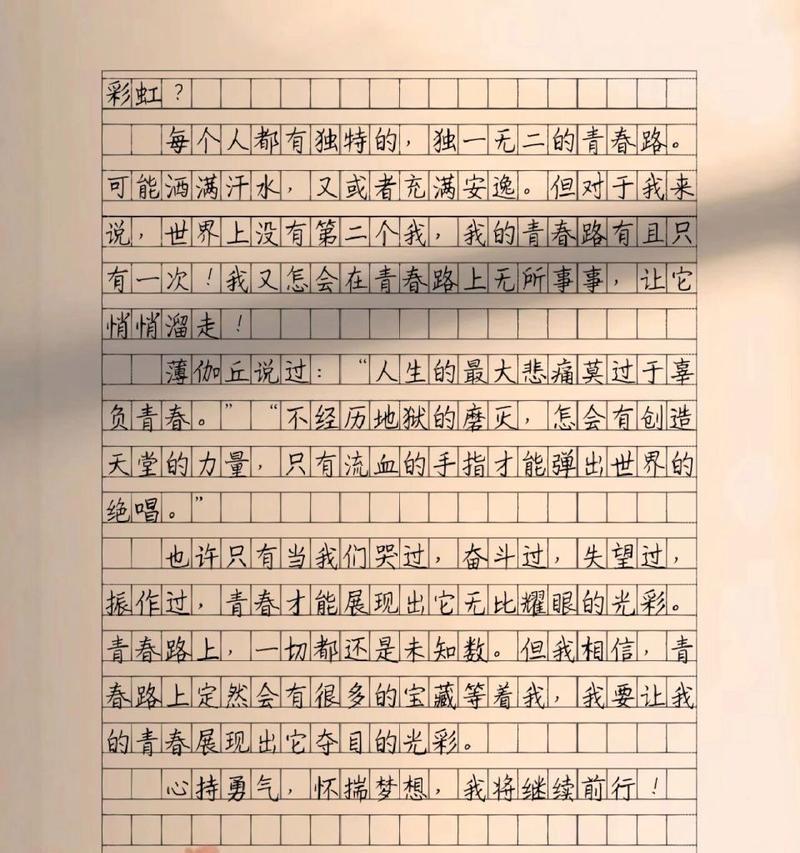 彩虹？
每个人都有独特的，独一无二的青春路。
可能洒满汗水，又或者充满安逸。但对于我来
说，世界上没有第二个我，我的青春路有且只
有一次！我又怎会在青春路上无所事事，让它
悄悄溜走！
薄伽丘说过：“人生的最大悲痛莫过于辜
负青春。”“不经历地狱的磨灭，怎会有创造
天堂的力量，只有流血的手指才能弹出世界的
绝唱。”
也许只有当我们哭过，奋斗过，失望过，
振作过，青春才能展现出它无比耀眼的光彩。
青春路上，一切都还是未知数。但我相信，青
春路上定然会有很多的宝藏等着我，我要让我
的青春展现出它夺目的光彩。
心持勇气，怀揣梦想，我将继续前行！